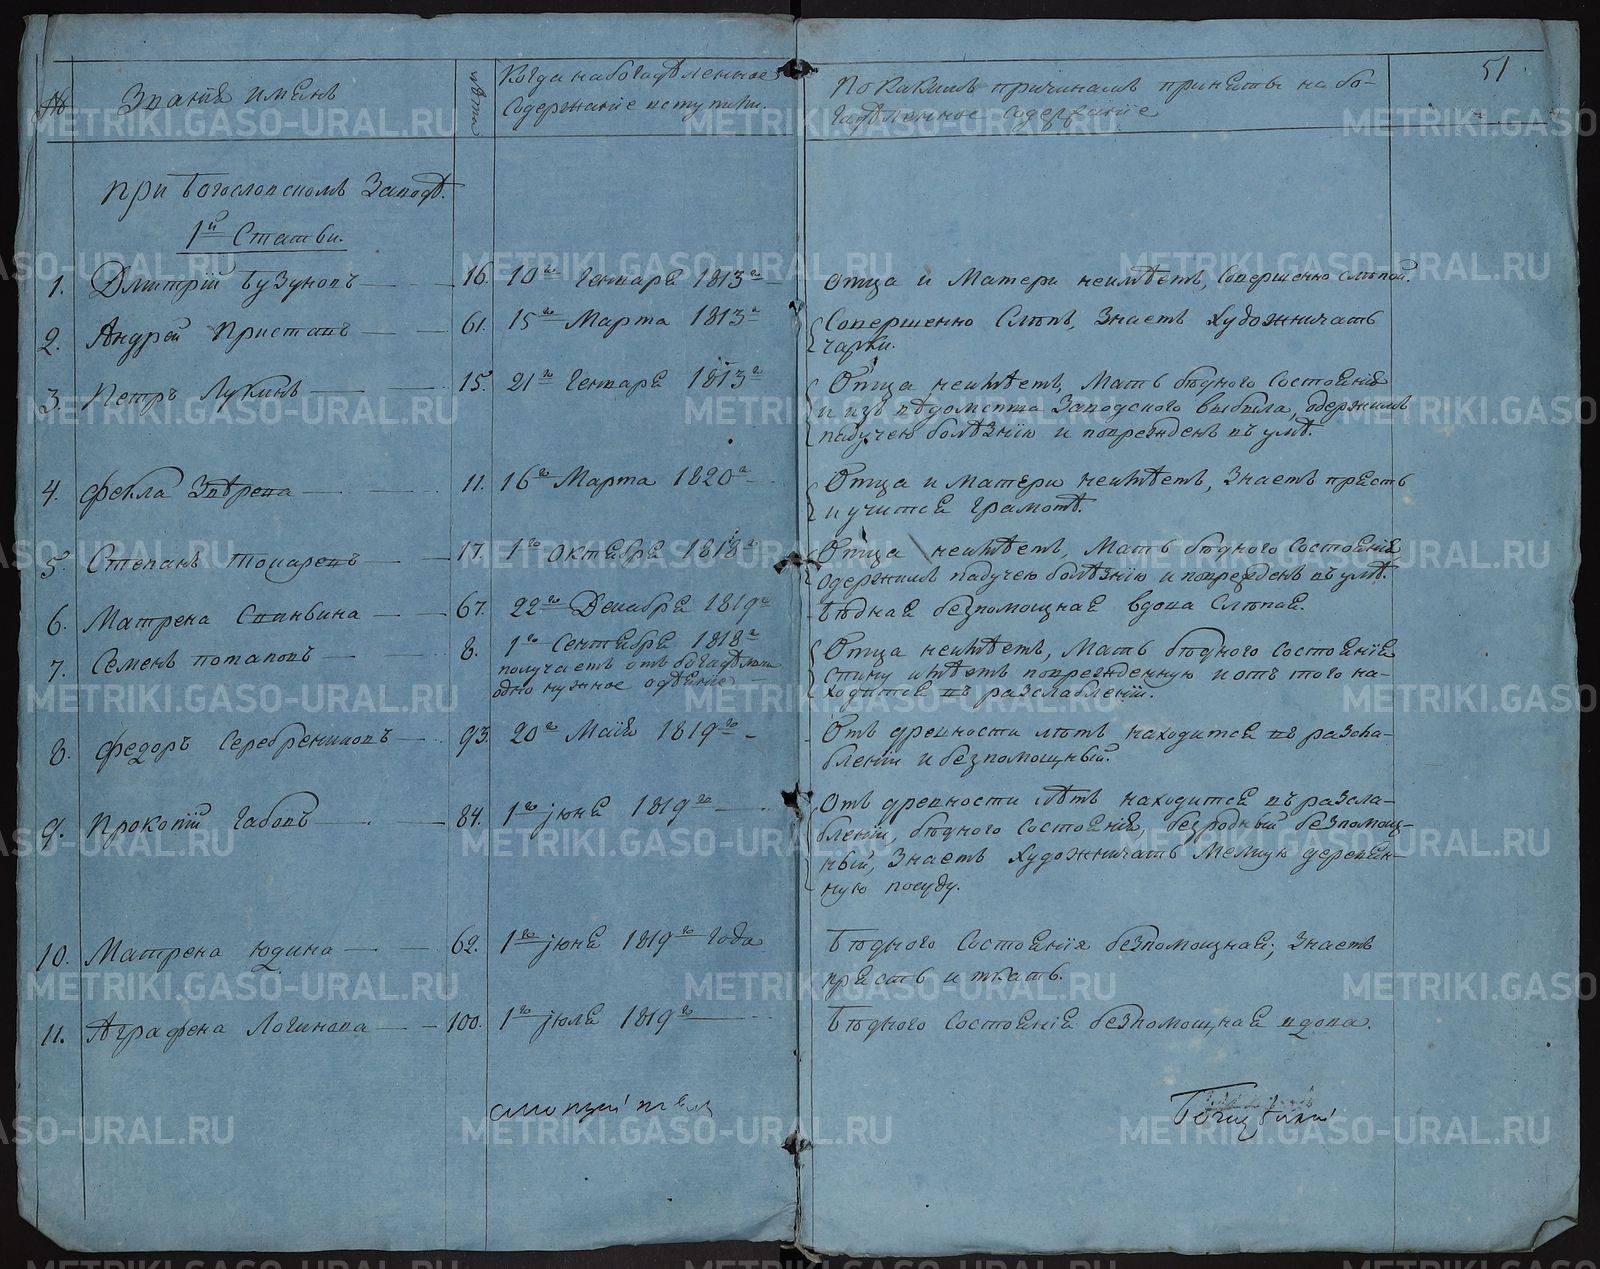 51
№ Званiя именъ лѣта Когда на богадѣленное
содержанiе поступили.
По какимъ причинамъ приняты на бо-
гадѣленное содержанiе
при Богословскомъ Заводѣ.
1й Статьи.
1. Дмитрiй Бузуновъ 16. 10го Генваря 1813го Отца и Матери неимѣетъ, Совершенно Слѣпой.
2. Андрей Приставъ 61. 15го Марта 1813го Совершенно Слѣпъ, Знаетъ Художничать
чарки.
3. Петръ Лукинъ 15. 21го Генваря 1813го Отца неимѣетъ, Мать бѣдного Состоянiя
и изъ вѣдомства Заводского выбыла, одержимъ
падучею болѣзнiю и поврежденъ въ умѣ.
4. Фекла Звѣрева 11. 16го Марта 1820го Отца и Матери неимѣетъ, Знаетъ прясть
и учится Грамотѣ.
5. Степанъ Токаревъ 17. 1го Октября 1818го Отца неимѣетъ, Мать бѣдного Состоянiя
одержимъ падучею болѣзнiю и поврежденъ въ умѣ.
6. Матрена Спиньвина 67. 22го Декабря 1819го Бѣдная безпомощная вдова Слѣпая.
7. Семенъ Потаповъ 8. 1го Сентября 1818го Отца неимѣетъ, Мать бѣдного Состоянiя
получаетъ отъ богадѣльни
одно нужное одѣянiе
спину имѣетъ поврежденную и отъ того на-
ходится въ разслабленiи.
8. Федоръ Серебрениковъ 93. 20го Маiя 1819го Отъ древности лѣтъ находится въ разсла-
бленiи и безпомощный.
9. Прокопiй Бабовъ 84. 1го iюня 1819го Отъ древности лѣтъ находится въ разсла-
бленiи, бѣдного Состоянiя, безродный безпомощ-
ный, Знаетъ Художничать Мелкую деревян-
ную посуду.
10. Матрена Юдина 62. 1го iюня 1819го года Бѣдного Состоянiя безпомощная; Знаетъ
прясть и ткать.
11. Аграфена Логинова 100. 1го iюля 1819го Бѣдного Состоянiя безпомощная вдова.
METRIKI.GASO-URAL.RU